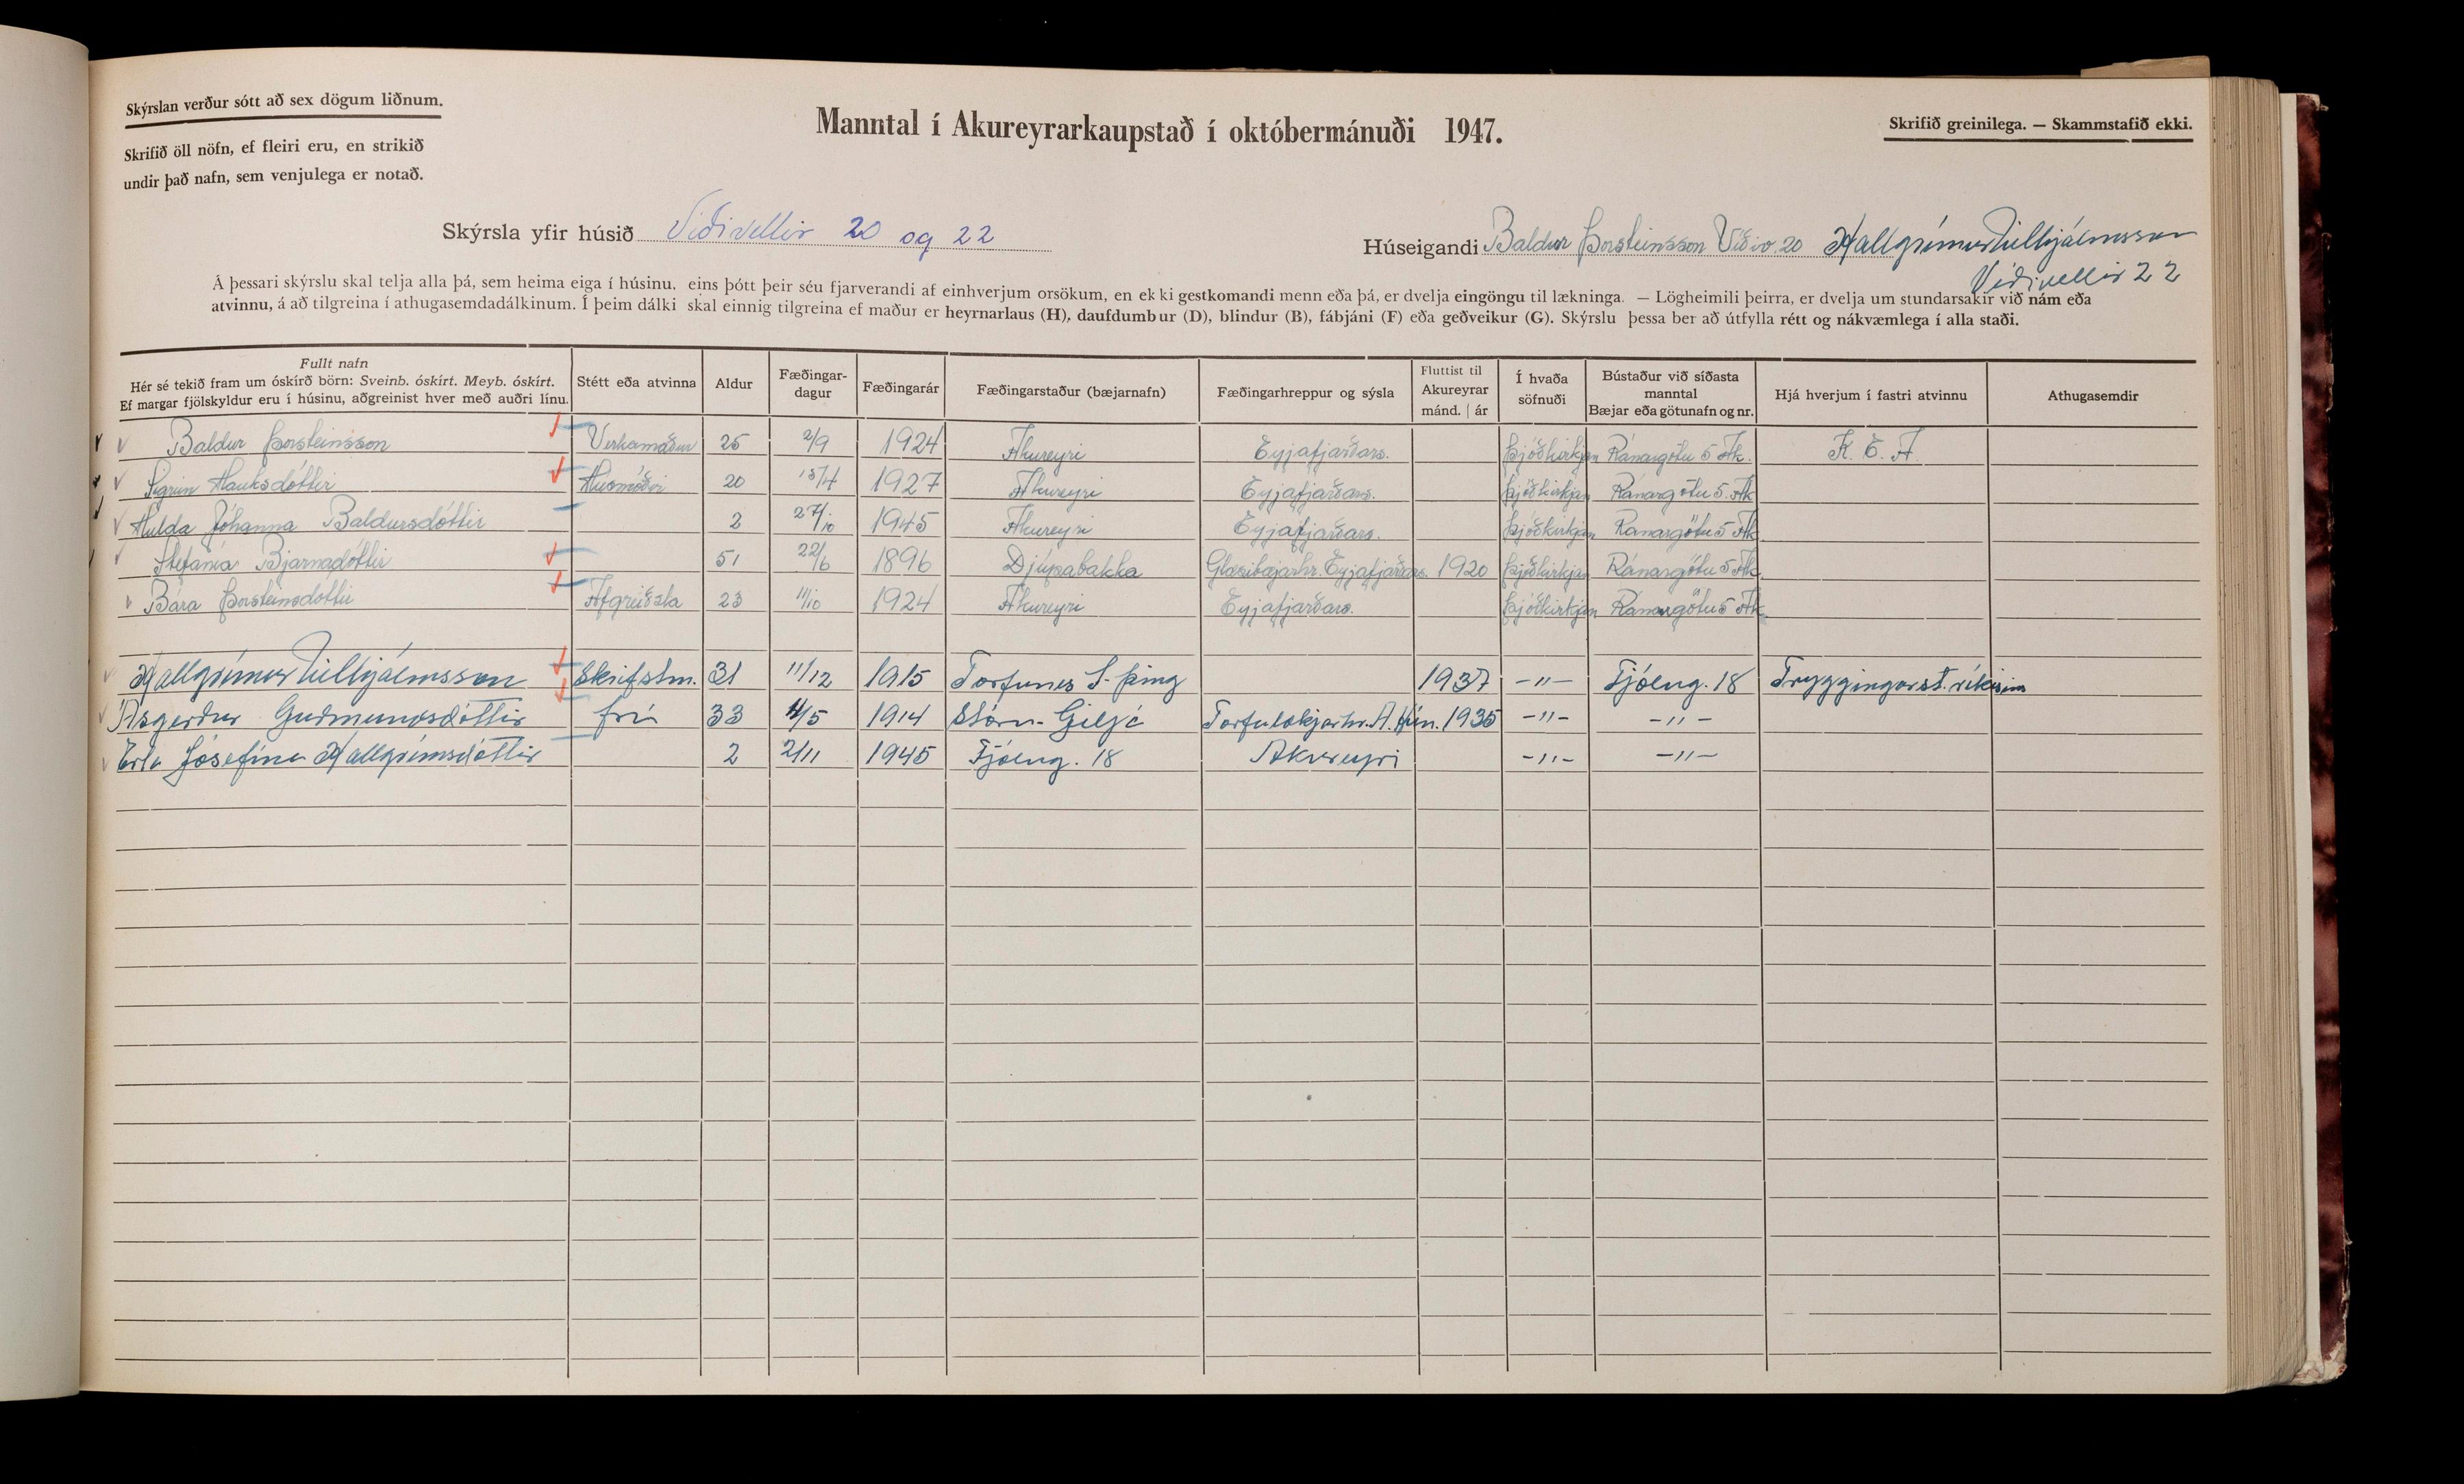 Skýrslan verður sótt að sex dögum liðnum.
Skrifið öll nöfn, ef fleiri eru, en strikið
undir það nafn, sem venjulega er notað.
Manntal í Akureyrarkaupstað í októbermánuði 1947.
Skrifið greinilega. — Skammstafið ekki.
Skýrsla yfir húsið Víðivellir 20 og 22
Húseigandi Baldur Þorsteinsson Víðiv. 20 Hallgrímur Vilhjálmsson
Víðivellir 22
Á þessari skýrslu skal telja alla þá, sem heima eiga í húsinu, eins þótt þeir séu fjarverandi af einhverjum orsökum, en ekki gestkomandi menn eða þá, er dvelja eingöngu til lækninga. — Lögheimili þeirra, er dvelja um stundarsakir við nám eða
atvinnu, á að tilgreina í athugasemdadálkinum. Í þeim dálki skal einnig tilgreina ef maður er heyrnarlaus (H), daufdumbur (D), blindur (B), fábjáni (F) eða geðveikur (G). Skýrslu þessa ber að útfylla rétt og nákvæmlega í alla staði.
Fullt nafn
Hér sé tekið fram um óskírð börn: Sveinb. óskírt. Meyb. óskírt.
Ef margar fjölskyldur eru í húsinu, aðgreinist hver með auðri línu.
Stétt eða atvinna
Aldur
Fæðingar-
dagur
Fæðingarár
Fæðingarstaður (bæjarnafn)
Fæðingarhreppur og sýsla
Fluttist til
Akureyrar
mánd. | ár
Í hvaða
söfnuði
Bústaður við síðasta
manntal
Bæjar eða götunafn og nr.
Hjá hverjum í fastri atvinnu
Athugasemdir
Baldur Þorsteinsson Verkamaður 25 2/9 1924 Akureyri Eyjafjarðars. Þjóðkirkjan Ránargötu 5 Ak. K. E. A.
Sigrún Hauksdóttir Húsmóðir 20 15/4 1927 Akureyri Eyjafjarðars. Þjóðkirkjan Ránargötu 5. Ak
Hulda Jóhanna Baldursdóttir 2 27/10 1945 Akureyri Eyjafjarðars. Þjóðkirkjan Ránargötu 5 Ak
Stefanía Bjarnadóttir 51 22/6 1896 Djúpabakka Glæsibæjarhr. Eyjafjarðars. 1920 Þjóðkirkjan Ránargötu 5 Ak.
Bára Þorsteinsdóttir Afgreiðsla 23 11/10 1924 Akureyri Eyjafjarðars. Þjóðkirkjan Ránargötu 5 Ak.
Hallgrímur Vilhjálmsson Skrifstm. 31 11/12 1915 Torfunes S. Þing 1937 -"- Fjólug. 18 Tryggingarst. ríkisins
Ásgerður Guðmundsdóttir frú 33 4/5 1914 Stóru-Giljá Torfulækjarhr. A. Hún. 1935 -"- -"-
Erla Jósefína Hallgrímsdóttir 2 2/11 1945 Fjólug. 18 Akureyri -"- -"-